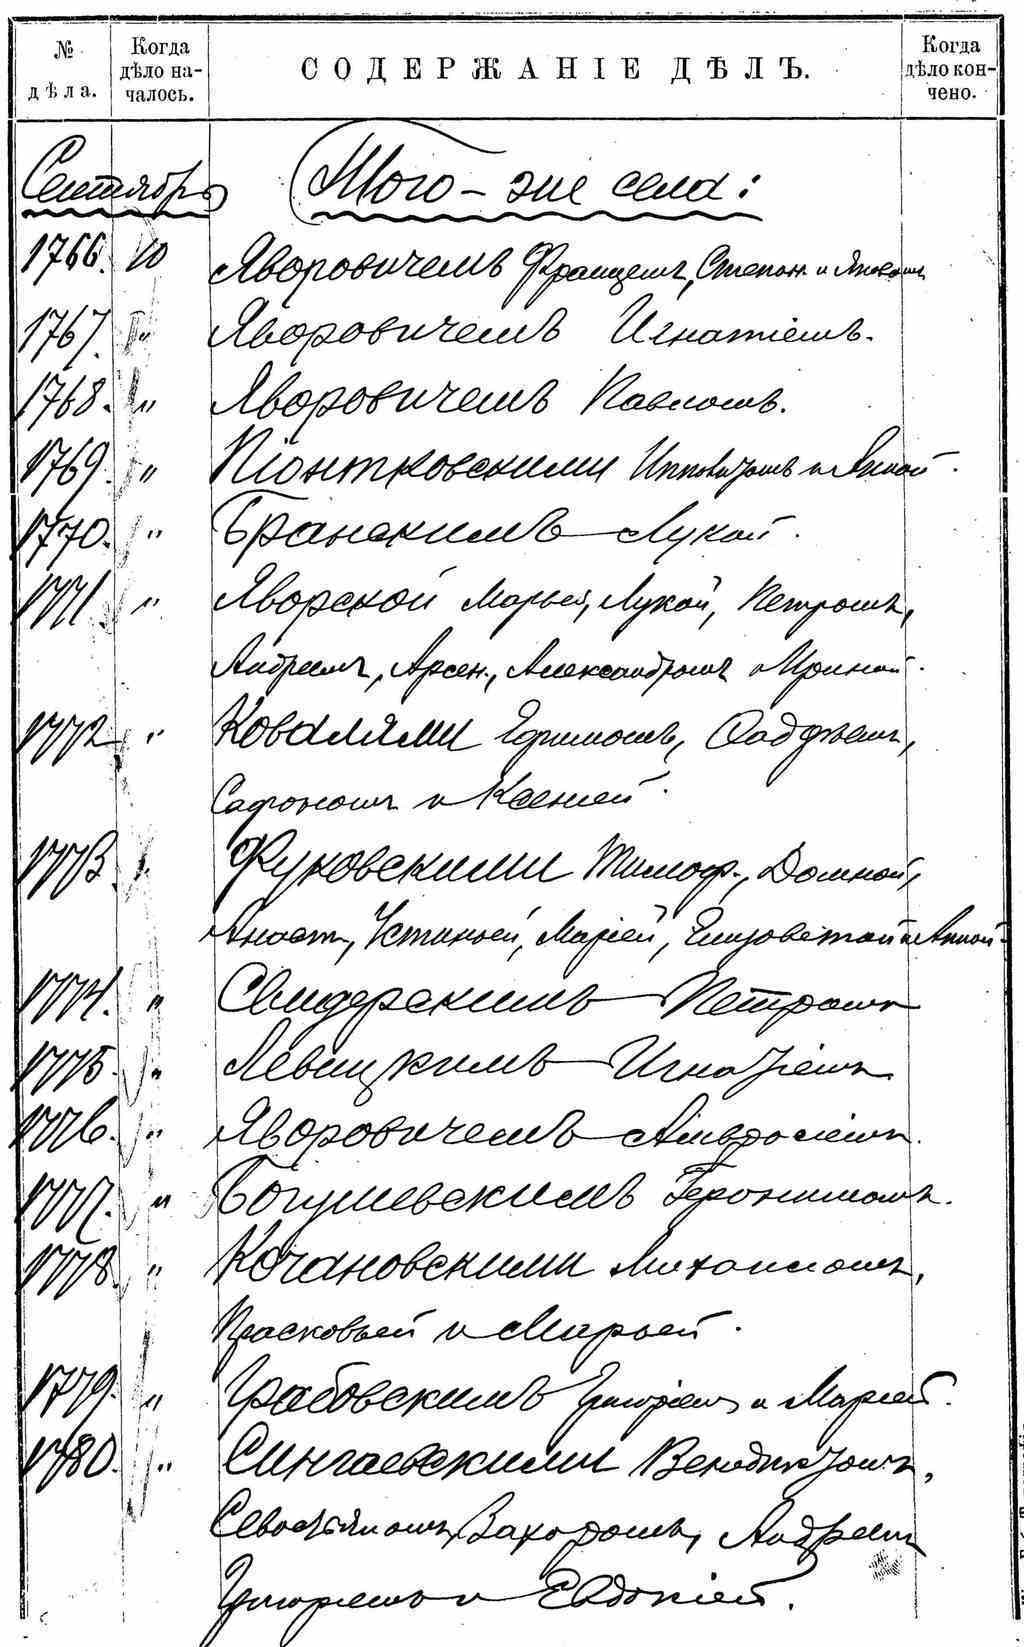 № дѣла.
Когда дѣло началось.
СОДЕРЖАНІЕ ДѢЛЪ.
Когда дѣло кончено.
Сентябрь Того-же села:
1766. 10 Яворовичемъ Францемъ, Степан. и Яковомъ
1767. " Яворовичемъ Игнатіемъ.
1768. " Яворовичемъ Павломъ.
1769. " Піонтковскими Ипполитомъ и Анной.
1770. " Бранскимъ Лукой.
1771. " Яворской Марьей, Лукой, Петромъ,
Андреемъ, Арсен., Александромъ и Ириной.
1772. " Ковалями Ефимомъ, Фаддѣемъ,
Сафономъ и Ксеніей.
1773. " Жуковскими Тимоф., Домной,
Анаст., Устиньей, Маріей, Елизоветой и Анной.
1774. " Свидерскимъ Петромъ
1775. " Левицкимъ Игнатіемъ
1776. " Яворовичемъ Амвросіемъ.
1777. " Богушевскимъ Геронимомъ.
1778. " Кочановскими Михаиломъ,
Прасковьей и Марьей.
1779. " Грабовскимъ Григоріемъ и Маріей.
1780. " Сингаевскими Венедиктомъ,
Севостьяномъ, Захоромъ, Андреемъ
Григоріемъ и Евдокіей.